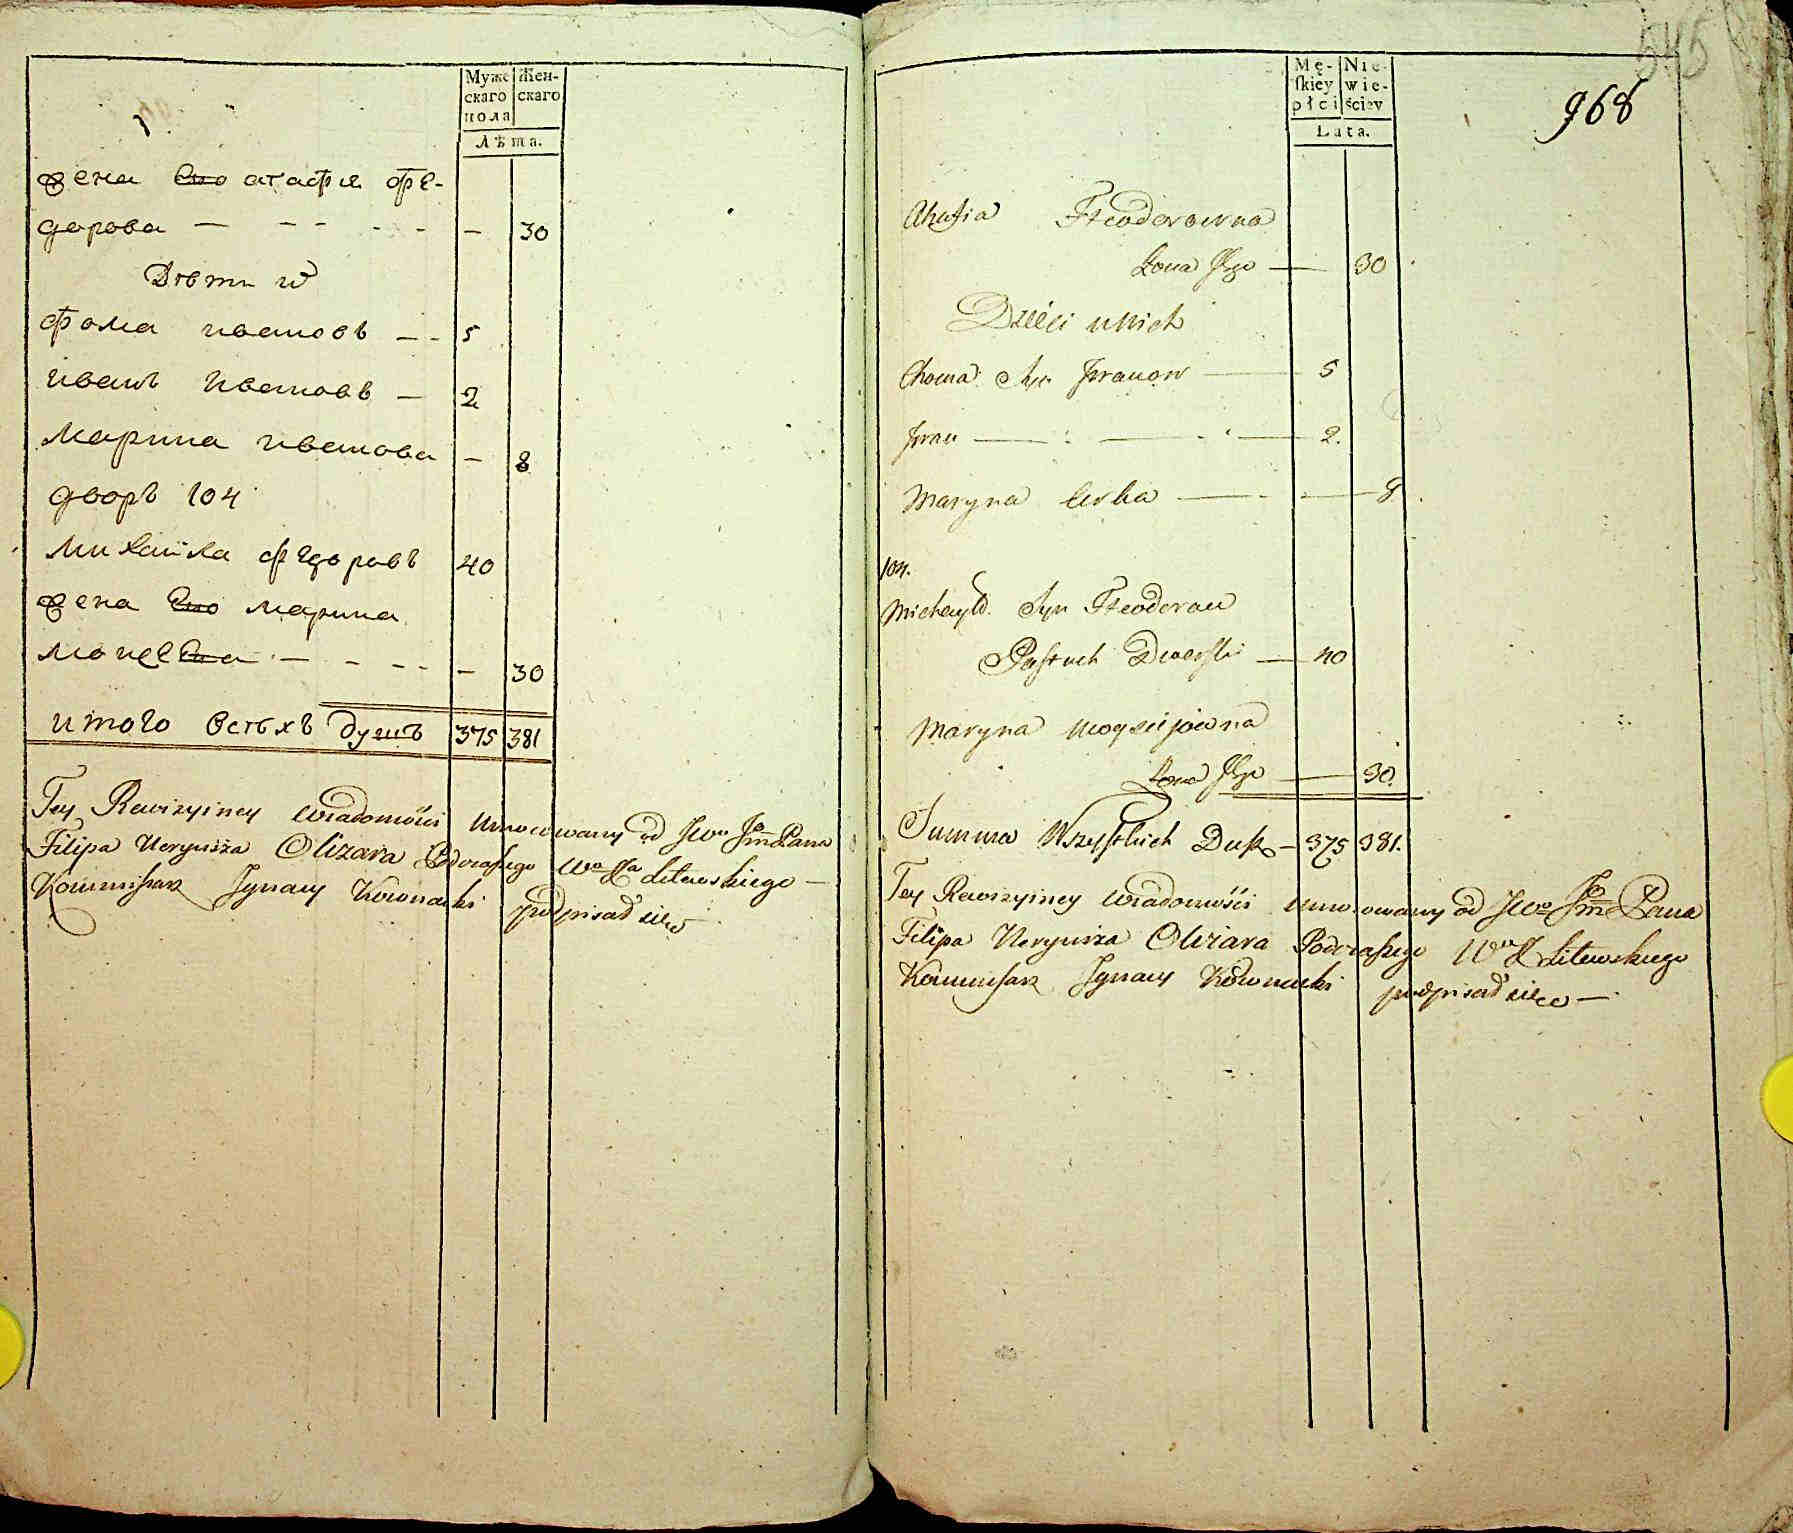 Муже
скаго
пола
Жен-
скаго
Лѣта.
жена ево агафия фе-
дорова — 30
Дѣти
фома ивановъ — 5
иванъ ивановъ — 2
марина иванова — 8
дворъ 104
михаила федоровъ 40
жена ево марина
30
итого всѣхъ душъ 375 381
Tey Rewizyiney Wiadomości Umocowany od JWo Jm Pana
Filipa Neryusza Olizara Podczaszego Wo Xa Litewskiego —
Kommissarz Ignacy Kownacki podpisał się
545
968
Mę-
skiey
płci
Nie-
wie-
ściey
Lata.
Ahafia Fteodorowna
Zona Jego — 30
Dzieci u Nich
Choma Syn Iwanow — 5
Iwan — 2.
Maryna Corka — 8.
104.
Michayło Syn Fteodorow
Pastuch Dworski — 40
Maryna Moyseijowna
Zona Jego — 30.
Summa Wszystkich Dusz — 375 381.
Tey Rewizyiney Wiadomości Umocowany od JWo Jm Pana
Filipa Neryusza Olizara Podczaszego Wo X Litewskiego
Kommissarz Ignacy Kownacki podpisał się —